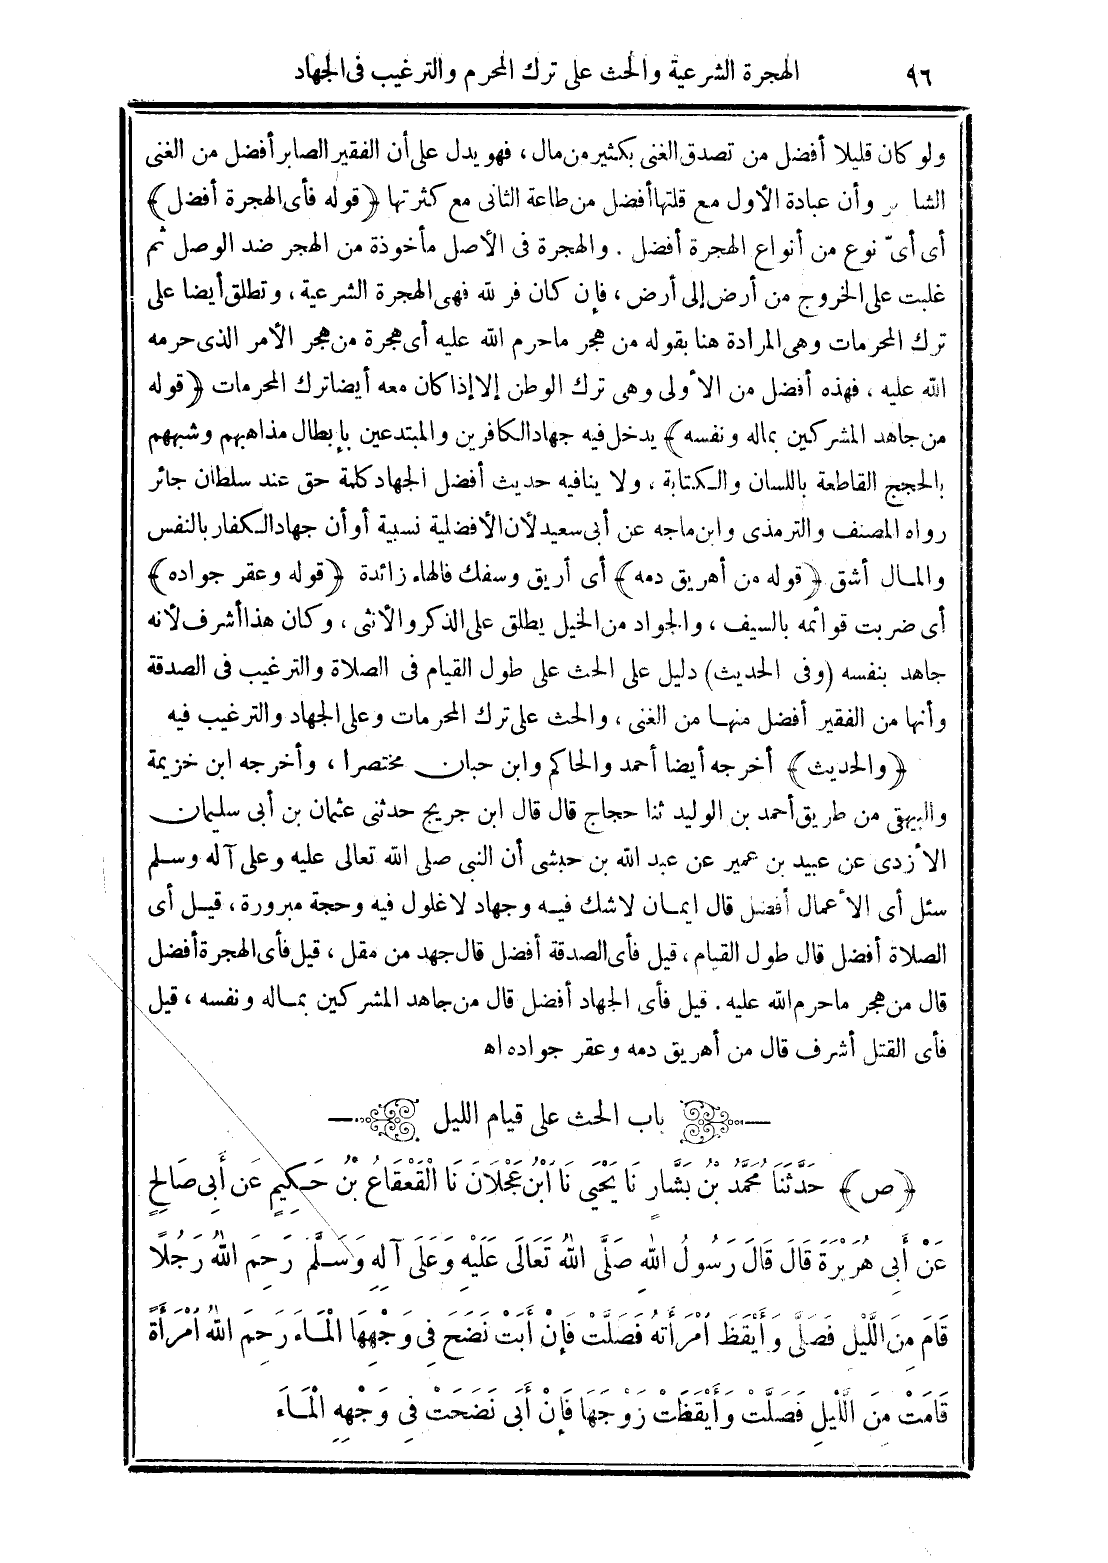 ٩٦ الهجرة الشرعية والحث على ترك المحرم والترغيب فى الجهاد
ولو كان قليلا أفضل من تصدق الغنى بكثير من مال ، فهو يدل على أن الفقير الصابر أفضل من الغنى
وأن عبادة الأول مع قلتها أفضل من طاعة الثانى مع كثرتها ﴿ قوله فأى الهجرة أفضل ﴾
أى أىّ نوع من أنواع الهجرة أفضل . والهجرة فى الأصل مأخوذة من الهجر ضد الوصل ثم
غلبت على الخروج من أرض إلى أرض ، فإن كان فر لله فهى الهجرة الشرعية ، وتطلق أيضا على
ترك المحرمات وهى المرادة هنا بقوله من هجر ماحرم الله عليه أى هجرة من هجر الأمر الذى حرمه
الله عليه ، فهذه أفضل من الأولى وهى ترك الوطن إلا إذا كان معه أيضا ترك المحرمات ﴿ قوله
من جاهد المشركين بماله ونفسه ﴾ يدخل فيه جهاد الكافرين والمبتدعين بإبطال مذاهبهم وشبههم
بالحجج القاطعة باللسان والكتابة ، ولا ينافيه حديث أفضل الجهاد كلمة حق عند سلطان جائر
رواه المصنف والترمذى وابن ماجه عن أبى سعيد لأن الأفضلية نسبية أو أن جهاد الكفار بالنفس
والمال أشق ﴿ قوله من أهريق دمه ﴾ أى أريق وسفك فالهاء زائدة ﴿ قوله وعقر جواده ﴾
أى ضربت قوائمه بالسيف ، والجواد من الخيل يطلق على الذكر والأنثى ، وكان هذا أشرف لأنه
جاهد بنفسه (وفى الحديث) دليل على الحث على طول القيام فى الصلاة والترغيب فى الصدقة
وأنها من الفقير أفضل منها من الغنى ، والحث على ترك المحرمات وعلى الجهاد والترغيب فيه
﴿ والحديث ﴾ أخرجه أيضا أحمد والحاكم وابن حبان مختصرا ، وأخرجه ابن خزيمة
والبيهقى من طريق أحمد بن الوليد ثنا حجاج قال قال ابن جريج حدثنى عثمان بن أبى سليمان
الأزدى عن عبيد بن عمير عن عبد الله بن حبشى أن النبى صلى الله تعالى عليه وعلى آله وسلم
سئل أى الأعمال أفضل قال ايمان لاشك فيه وجهاد لاغلول فيه وحجة مبرورة ، قيل أى
الصلاة أفضل قال طول القيام ، قيل فأى الصدقة أفضل قال جهد من مقل ، قيل فأى الهجرة أفضل
قال من هجر ماحرم الله عليه . قيل فأى الجهاد أفضل قال من جاهد المشركين بماله ونفسه ، قيل
فأى القتل أشرف قال من أهريق دمه وعقر جواده اهـ
باب الحث على قيام الليل
﴿ ص ﴾ حَدَّثَنَا مُحَمَّدُ بْنُ بَشَّارٍ نَا يَحْيَى نَا ابْنُ عَجْلَانَ نَا الْقَعْقَاعُ بْنُ حَكِيمٍ عَنْ أَبِى صَالِحٍ
عَنْ أَبِى هُرَيْرَةَ قَالَ قَالَ رَسُولُ اللهِ صَلَّى اللهُ تَعَالَى عَلَيْهِ وَعَلَى آلِهِ وَسَلَّمَ رَحِمَ اللهُ رَجُلًا
قَامَ مِنَ اللَّيْلِ فَصَلَّى وَأَيْقَظَ امْرَأَتَهُ فَصَلَّتْ فَإِنْ أَبَتْ نَضَحَ فِى وَجْهِهَا الْمَاءَ رَحِمَ اللهُ امْرَأَةً
قَامَتْ مِنَ اللَّيْلِ فَصَلَّتْ وَأَيْقَظَتْ زَوْجَهَا فَإِنْ أَبَى نَضَحَتْ فِى وَجْهِهِ الْمَاءَ